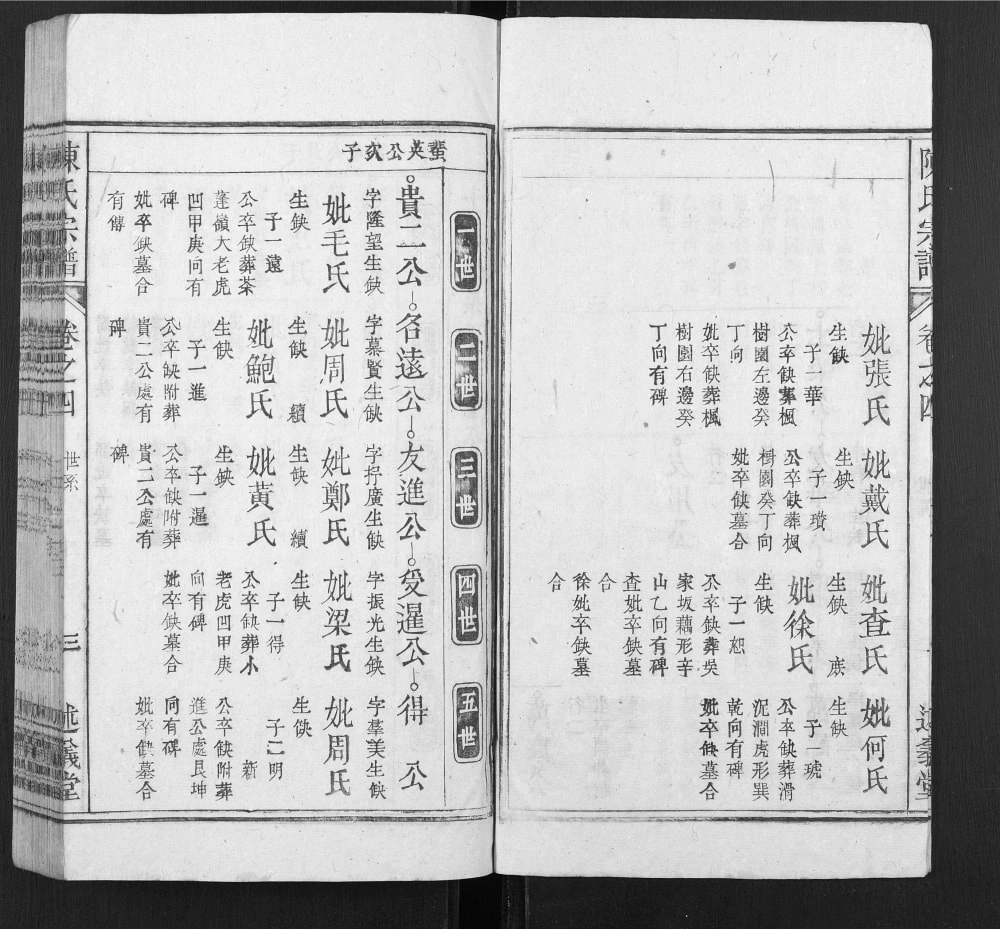 陳氏宗譜
卷之四
述義堂
妣張氏
生缺
子一華
公卒缺葬楓
樹園左邊癸
丁向
妣卒缺葬楓
樹園右邊癸
丁向有碑
妣戴氏
生缺
子一瓚
公卒缺葬楓
樹園癸丁向
妣卒缺墓合
妣查氏
生缺 庶
妣徐氏
生缺
子一恕
公卒缺葬吳
家坂藕形辛
山乙向有碑
查妣卒缺墓
合
徐妣卒缺墓
合
妣何氏
生缺
子一琥
公卒缺葬滑
泥澗虎形巽
乾向有碑
妣卒缺墓合
一世
二世
三世
四世
五世
蜚英公次子
貴二公
名遠公
友進公
受暹公
得公
字隆望生缺
妣毛氏
生缺
子一遠
公卒缺葬茶
蓬嶺大老虎
凹甲庚向有
碑
妣卒缺墓合
有傳
字慕賢生缺
妣周氏
生缺 續
妣鮑氏
生缺
子一進
公卒缺附葬
貴二公處有
碑
字抒廣生缺
妣鄭氏
生缺 續
妣黃氏
生缺
子一暹
公卒缺附葬
貴二公處有
碑
字振光生缺
妣梁氏
生缺
子一得
公卒缺葬小
老虎凹甲庚
向有碑
妣卒缺墓合
字羣美生缺
妣周氏
生缺
子二明 新
公卒缺附葬
進公處艮坤
向有碑
妣卒缺墓合
陳氏宗譜
卷之四
世系
三
述義堂